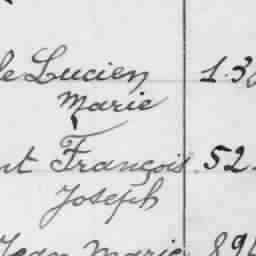 le Lucien 1.3
Marie
nt François 52.
Joseph
Jean Marie 89